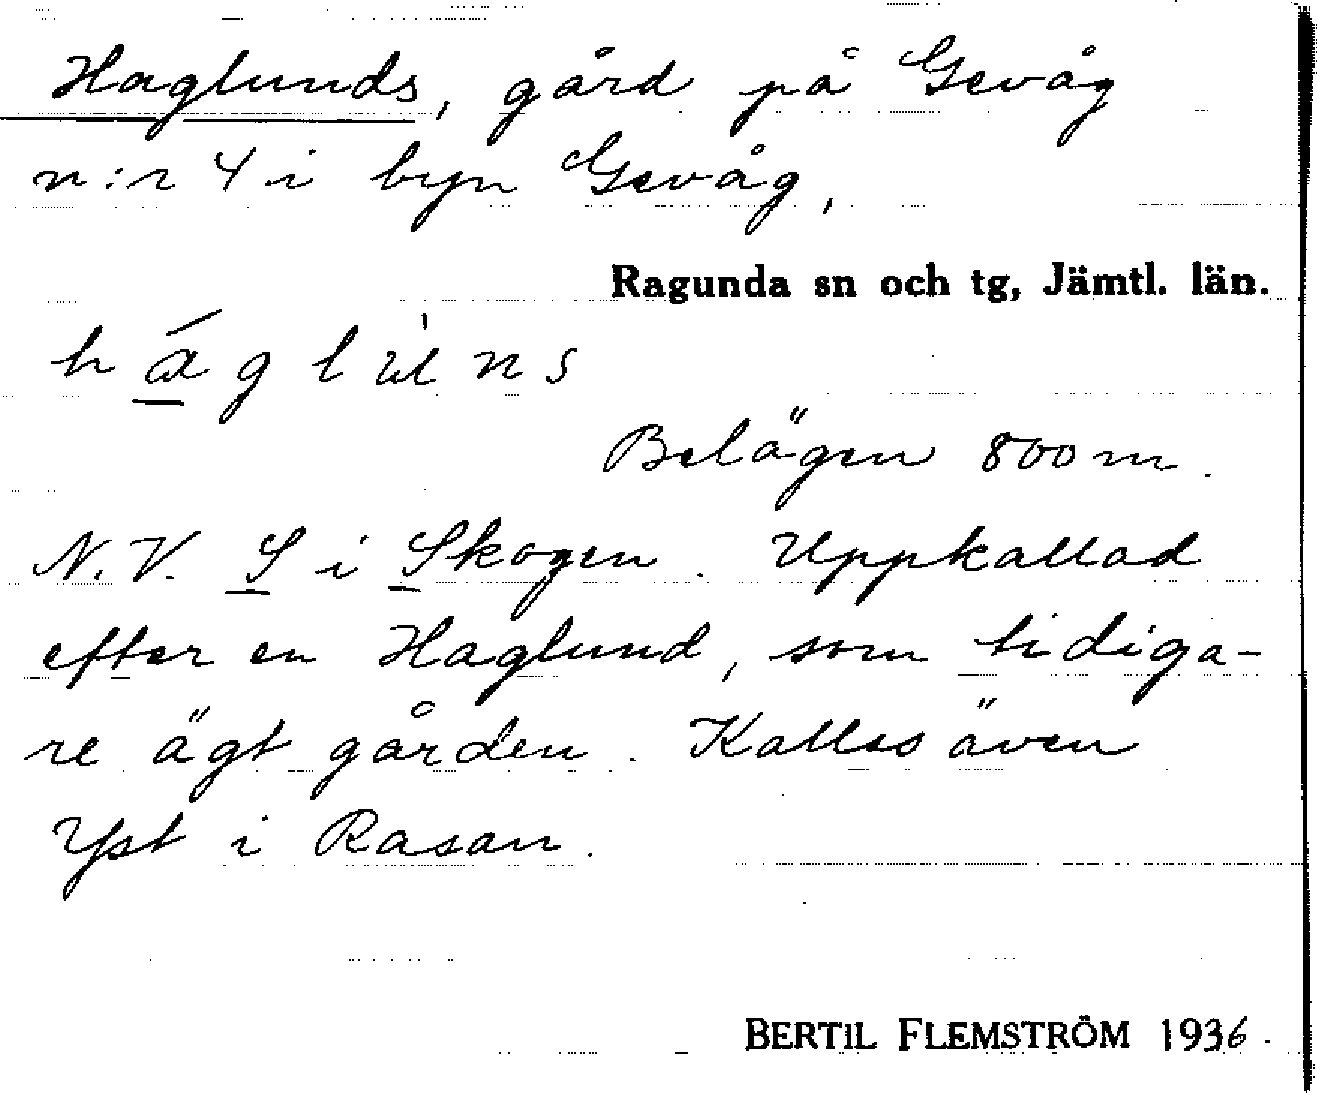 Haglunds, gård på Gevåg
n:r 4 i byn Gevåg,
Ragunda sn och tg, Jämtl. län.
Belägen 800 m.
N.V. S i Skogen. Uppkallad
efter en Haglund, som tidiga-
re ägt gården. Kallas även
Yst i Rasan.
BERTIL FLEMSTRÖM 1936.